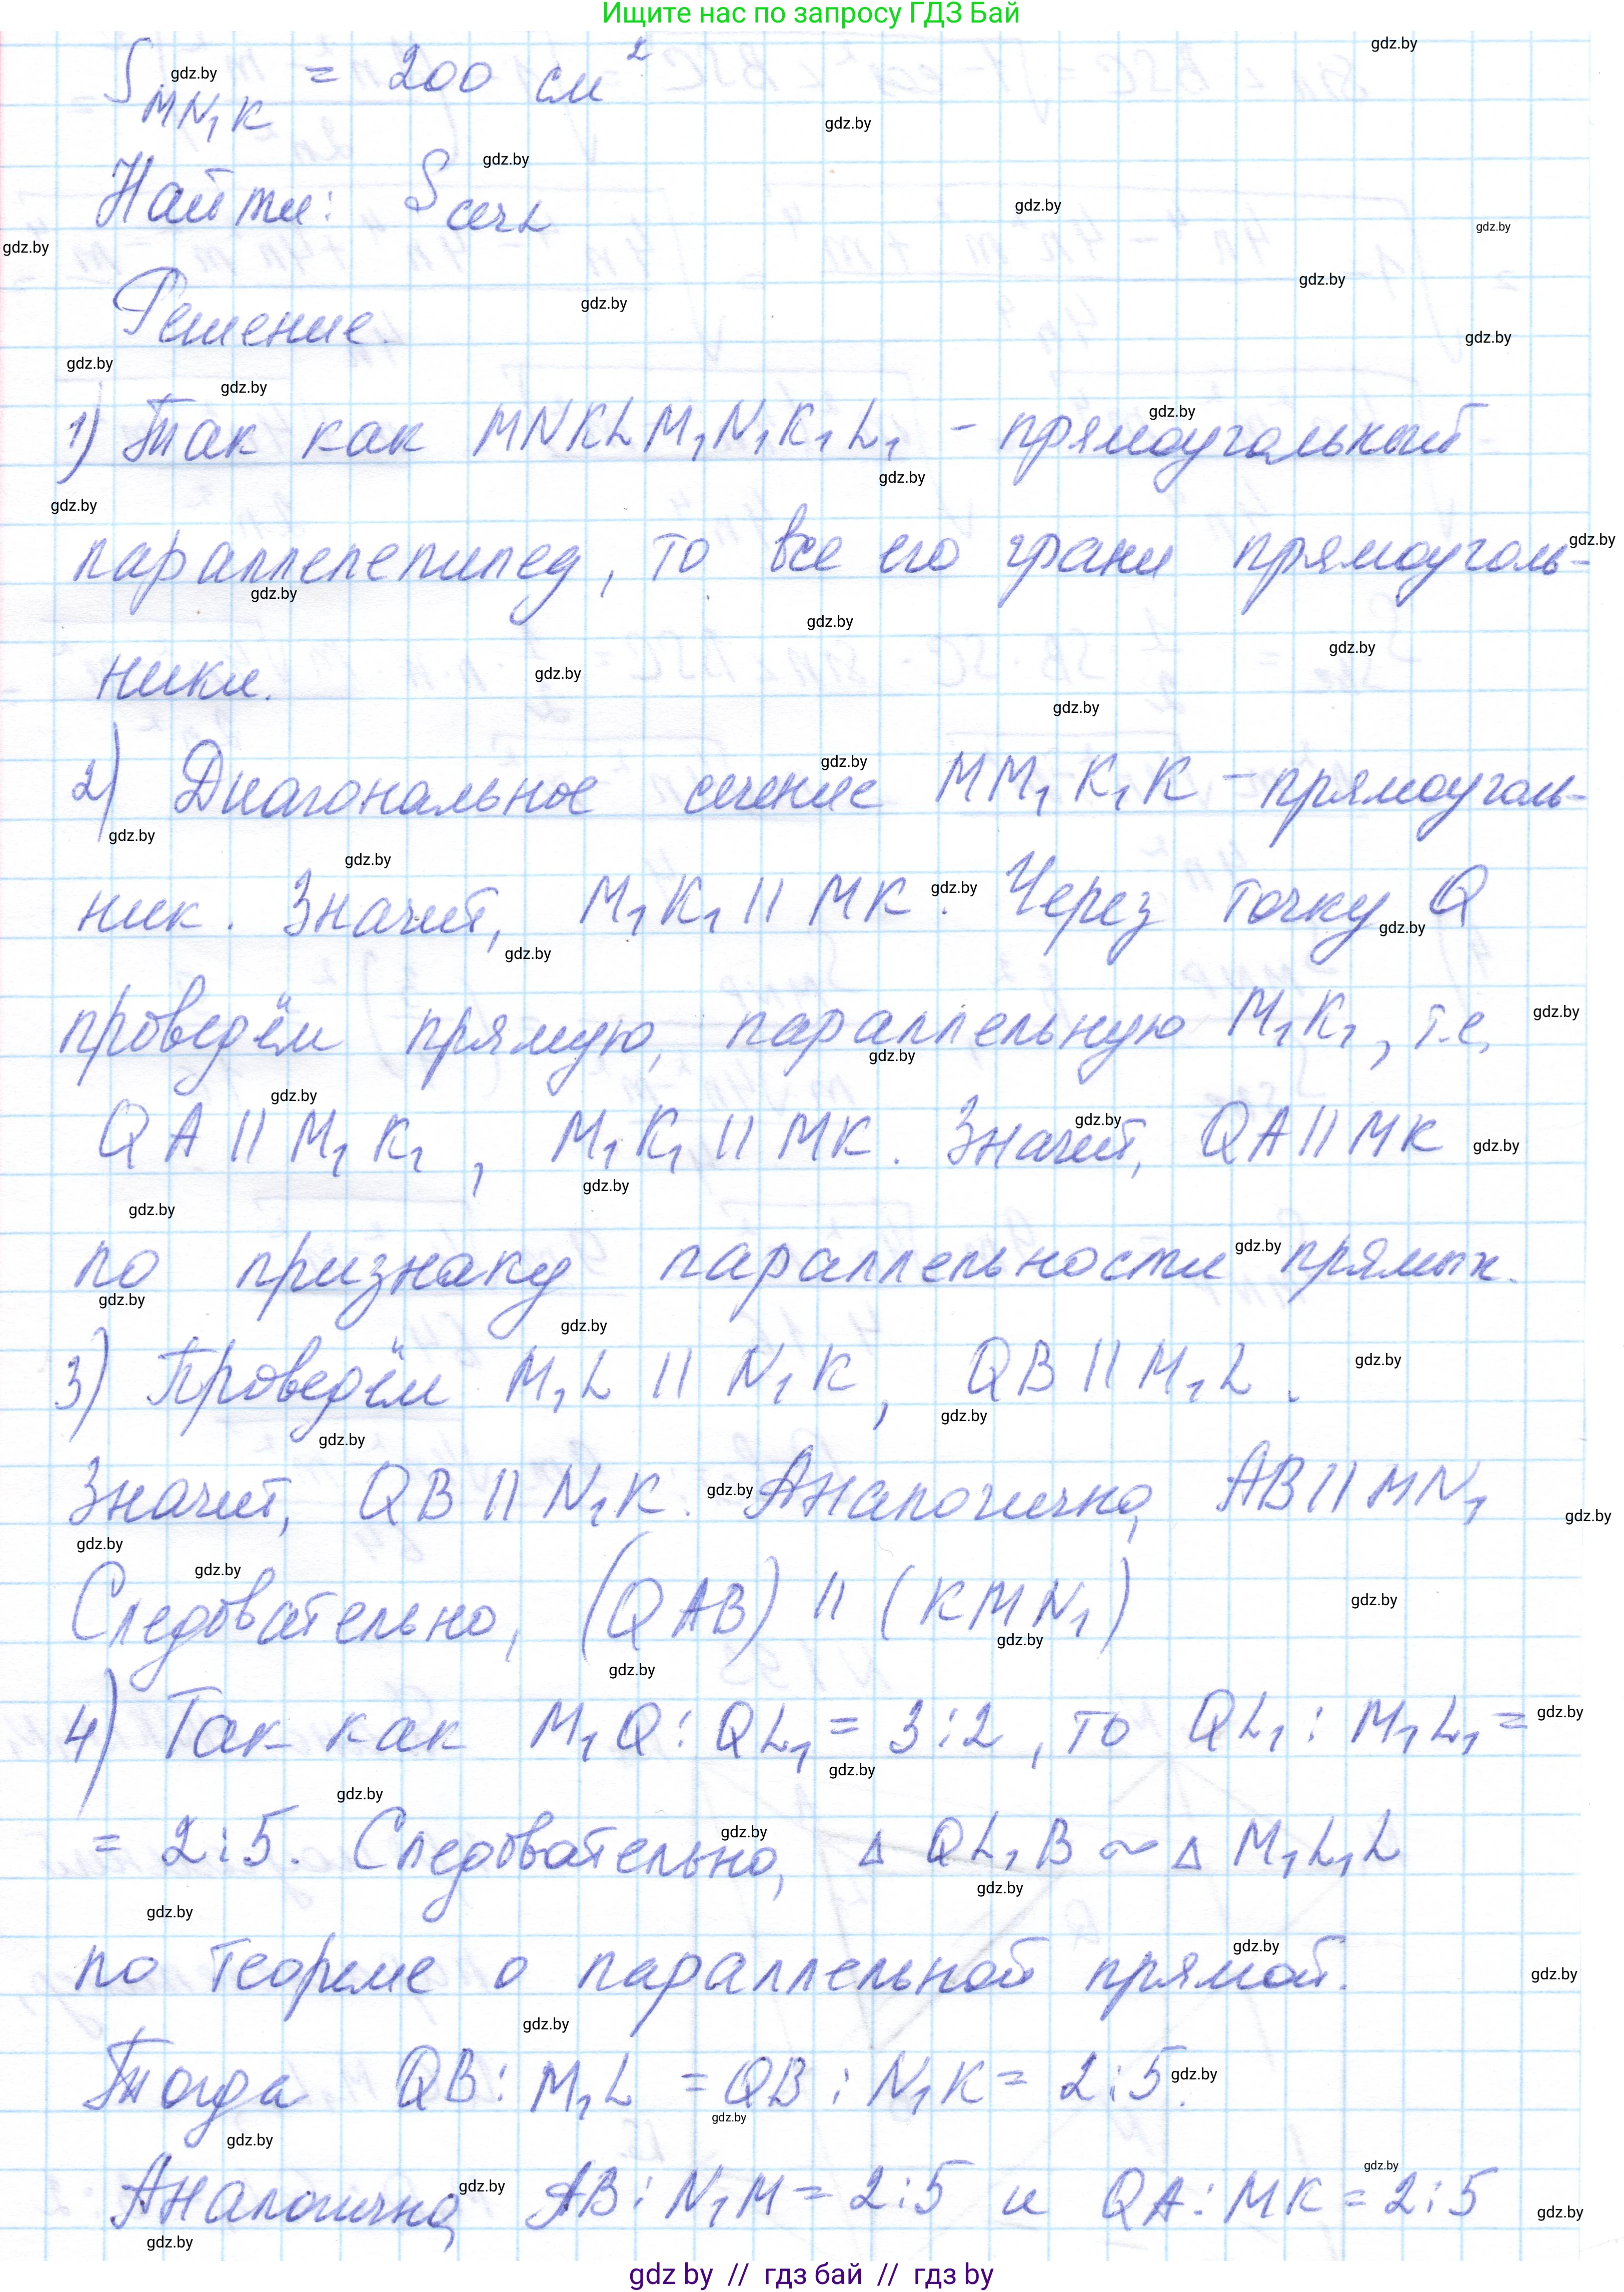 Ищите нас по запросу ГДЗ Бай
S MN₁K = 200 см²
Найти: S сеч L
Решение.
1) Так как MNKLM₁N₁K₁L₁ - прямоугольный
параллелепипед, то все его грани прямоуголь-
ники.
2) Диагональное сечение MM₁K₁K - прямоуголь-
ник. Значит, M₁K₁ || MK. Через точку Q
проведём прямую, параллельную M₁K₁, т.е.
QA || M₁K₁, M₁K₁ || MK. Значит, QA || MK
по признаку параллельности прямых.
3) Проведём M₁L || N₁K, QB || M₁L.
Значит, QB || N₁K. Аналогично, AB || MN₁
Следовательно, (QAB) || (KMN₁)
4) Так как M₁Q : QL₁ = 3:2, то QL₁ : M₁L₁ =
= 2:5. Следовательно, Δ QL₁B ~ Δ M₁L₁L
по теореме о параллельной прямой.
Тогда QB : M₁L = QB : N₁K = 2:5.
Аналогично, AB : N₁M = 2:5 и QA : MK = 2:5
gdz by // гдз бай // гдз by